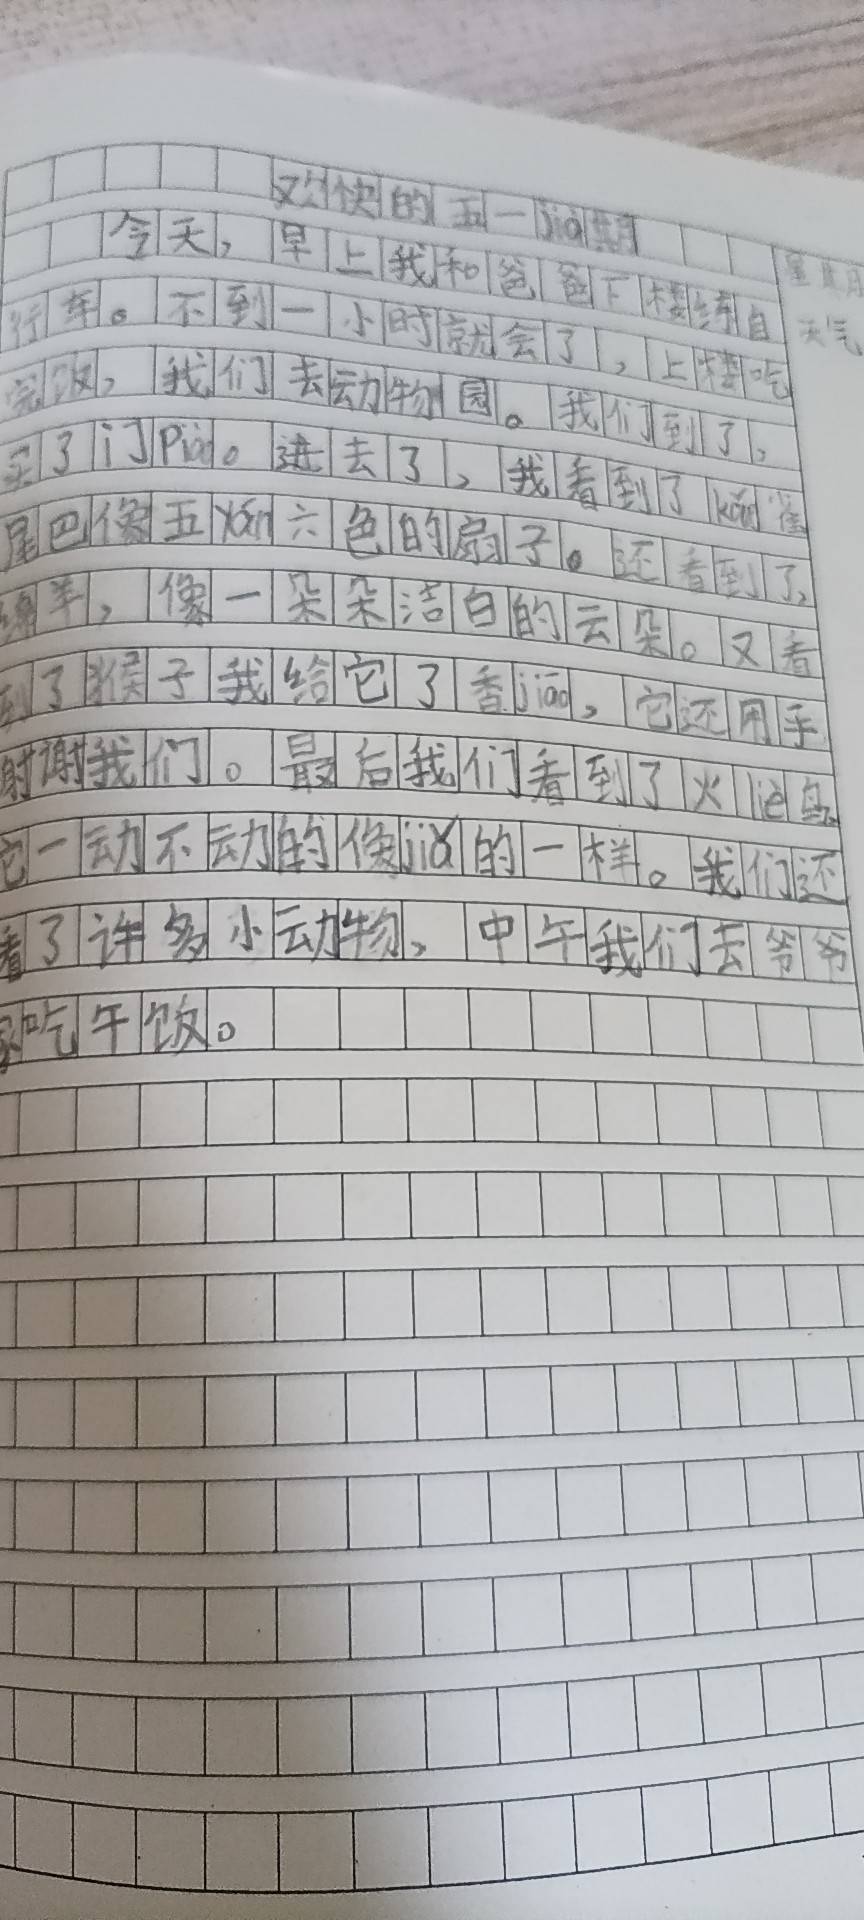 欢快的五一jià期
今天，早上我和爸爸下楼练自
行车。不到一小时就会了，上楼吃
完饭，我们去动物园。我们到了，
买了门Piào。进去了，我看到了kǒn雀
尾巴像五yán六色的扇子。还看到了，
绵羊，像一朵朵洁白的云朵。又看
到了猴子我给它了香jiāo，它还用手
谢谢我们。最后我们看到了火liè鸟
它一动不动的像jiǎ的一样。我们还
看了许多小动物，中午我们去爷爷
家吃午饭。
天气